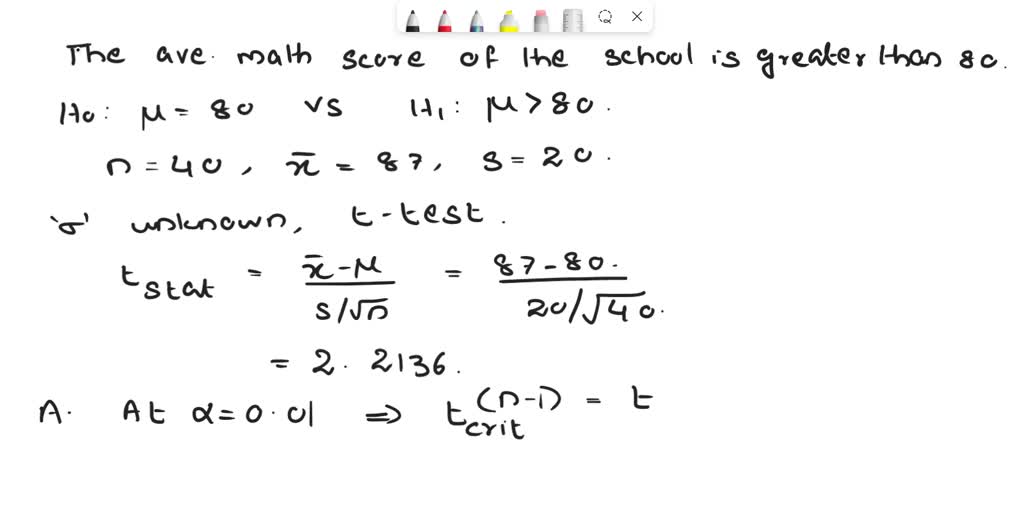 The ave. math score of the school is greater than 80.
H0: μ = 80 vs H1: μ > 80.
n = 40, x̄ = 87, s = 20.
'σ' unknown, t-test.
t stat = (x̄ - μ)/(s/√n) = (87 - 80.)/(20/√40.)
= 2. 2136.
A. At α = 0.01 ⇒ t crit (n-1) = t